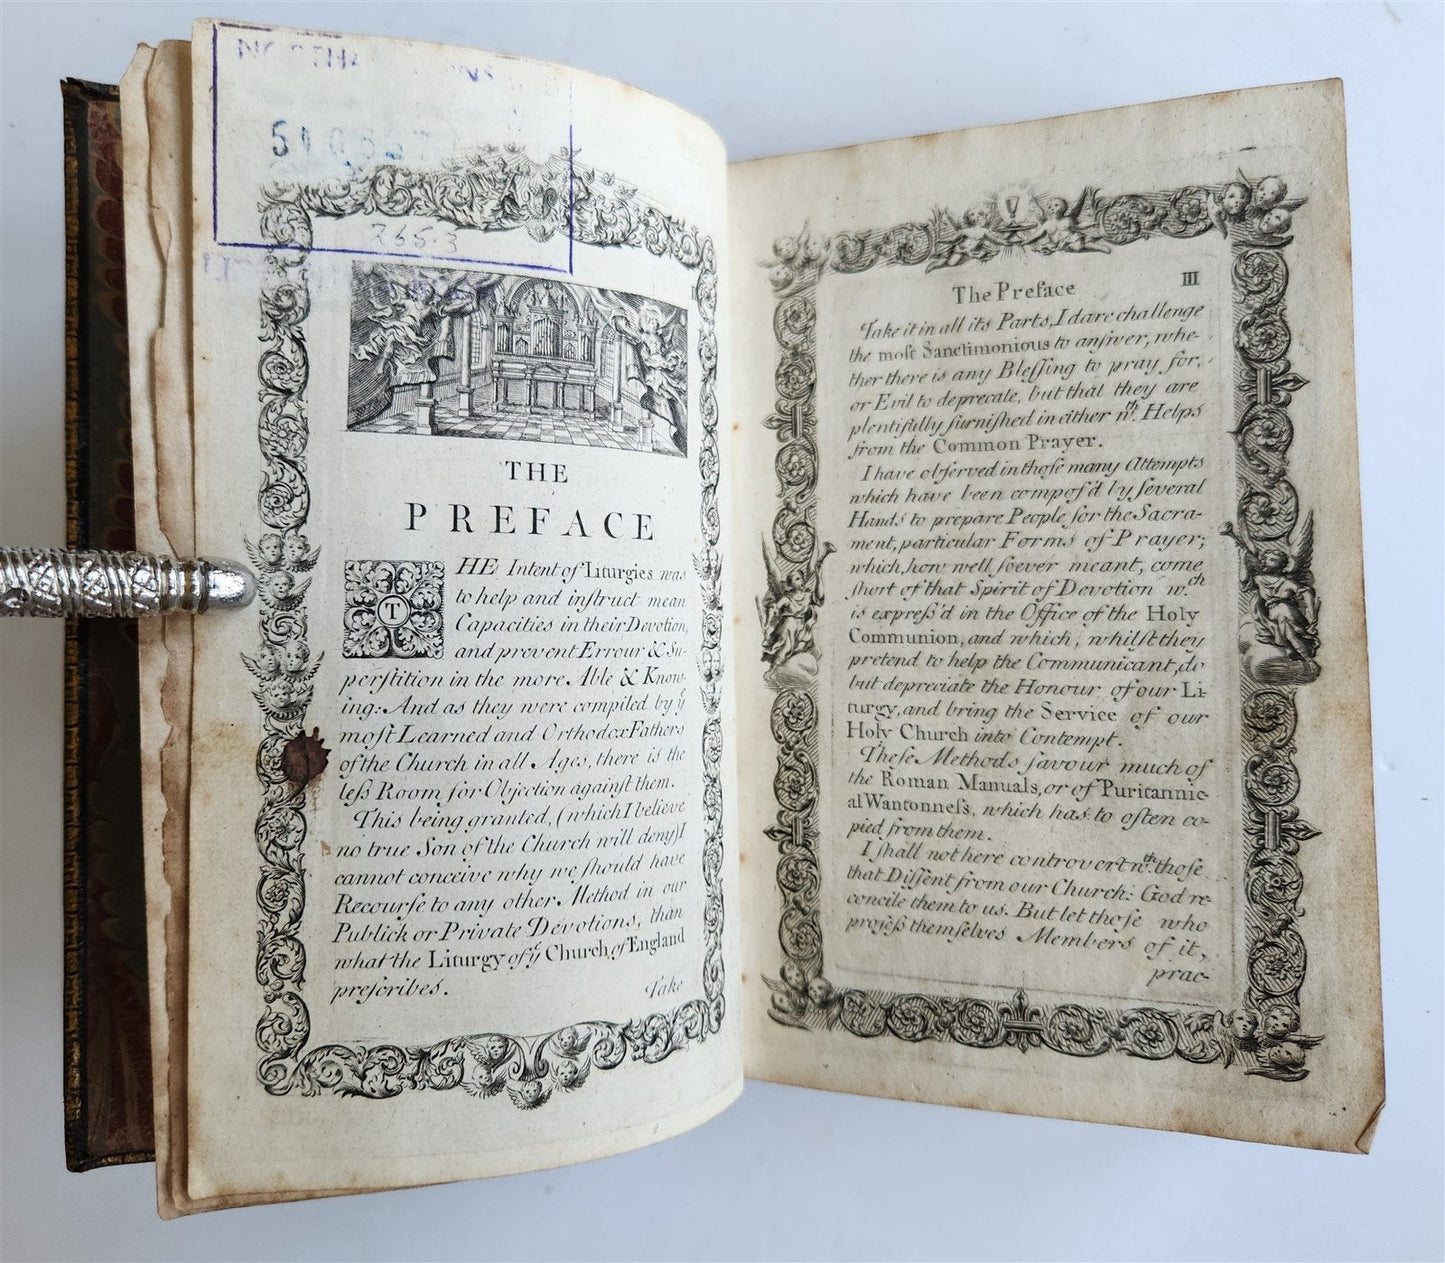 510
265.3
THE
PREFACE
THE Intent of Liturgies was
to help and inſtruct mean
Capacities in their Devotion,
and prevent Errour & Su-
perſtition in the more Able & Know-
ing: And as they were compiled by yᵉ
moſt Learned and Orthodox Fathers
of the Church in all Ages, there is the
leſs Room for Objection againſt them.
This being granted, (which I believe
no true Son of the Church will deny) I
cannot conceive why we ſhould have
Recourſe to any other Method in our
Publick or Private Devotions, than
what the Liturgy of yᵉ Church of England
preſcribes.
Take
The Preface III
Take it in all its Parts, I dare challenge
the moſt Sanctimonious to anſwer, whe-
ther there is any Bleſſing to pray for,
or Evil to deprecate, but that they are
plentifully furniſhed in either wᵗʰ. Helps
from the Common Prayer.
I have obſerved in thoſe many Attempts
which have been compoſ'd by ſeveral
Hands to prepare People for the Sacra-
ment, particular Forms of Prayer;
which, how well ſoever meant, come
ſhort of that Spirit of Devotion wᶜʰ
is expreſs'd in the Office of the Holy
Communion, and which, whilſt they
pretend to help the Communicant, do
but depreciate the Honour of our Li-
turgy, and bring the Service of our
Holy Church into Contempt.
Theſe Methods ſavour much of
the Roman Manuals, or of Puritannic-
al Wantonneſs, which has to often co-
pied from them.
I ſhall not here controvert wᵗʰ thoſe
that Diſſent from our Church: God re-
concile them to us. But let thoſe who
profeſs themſelves Members of it,
prac-